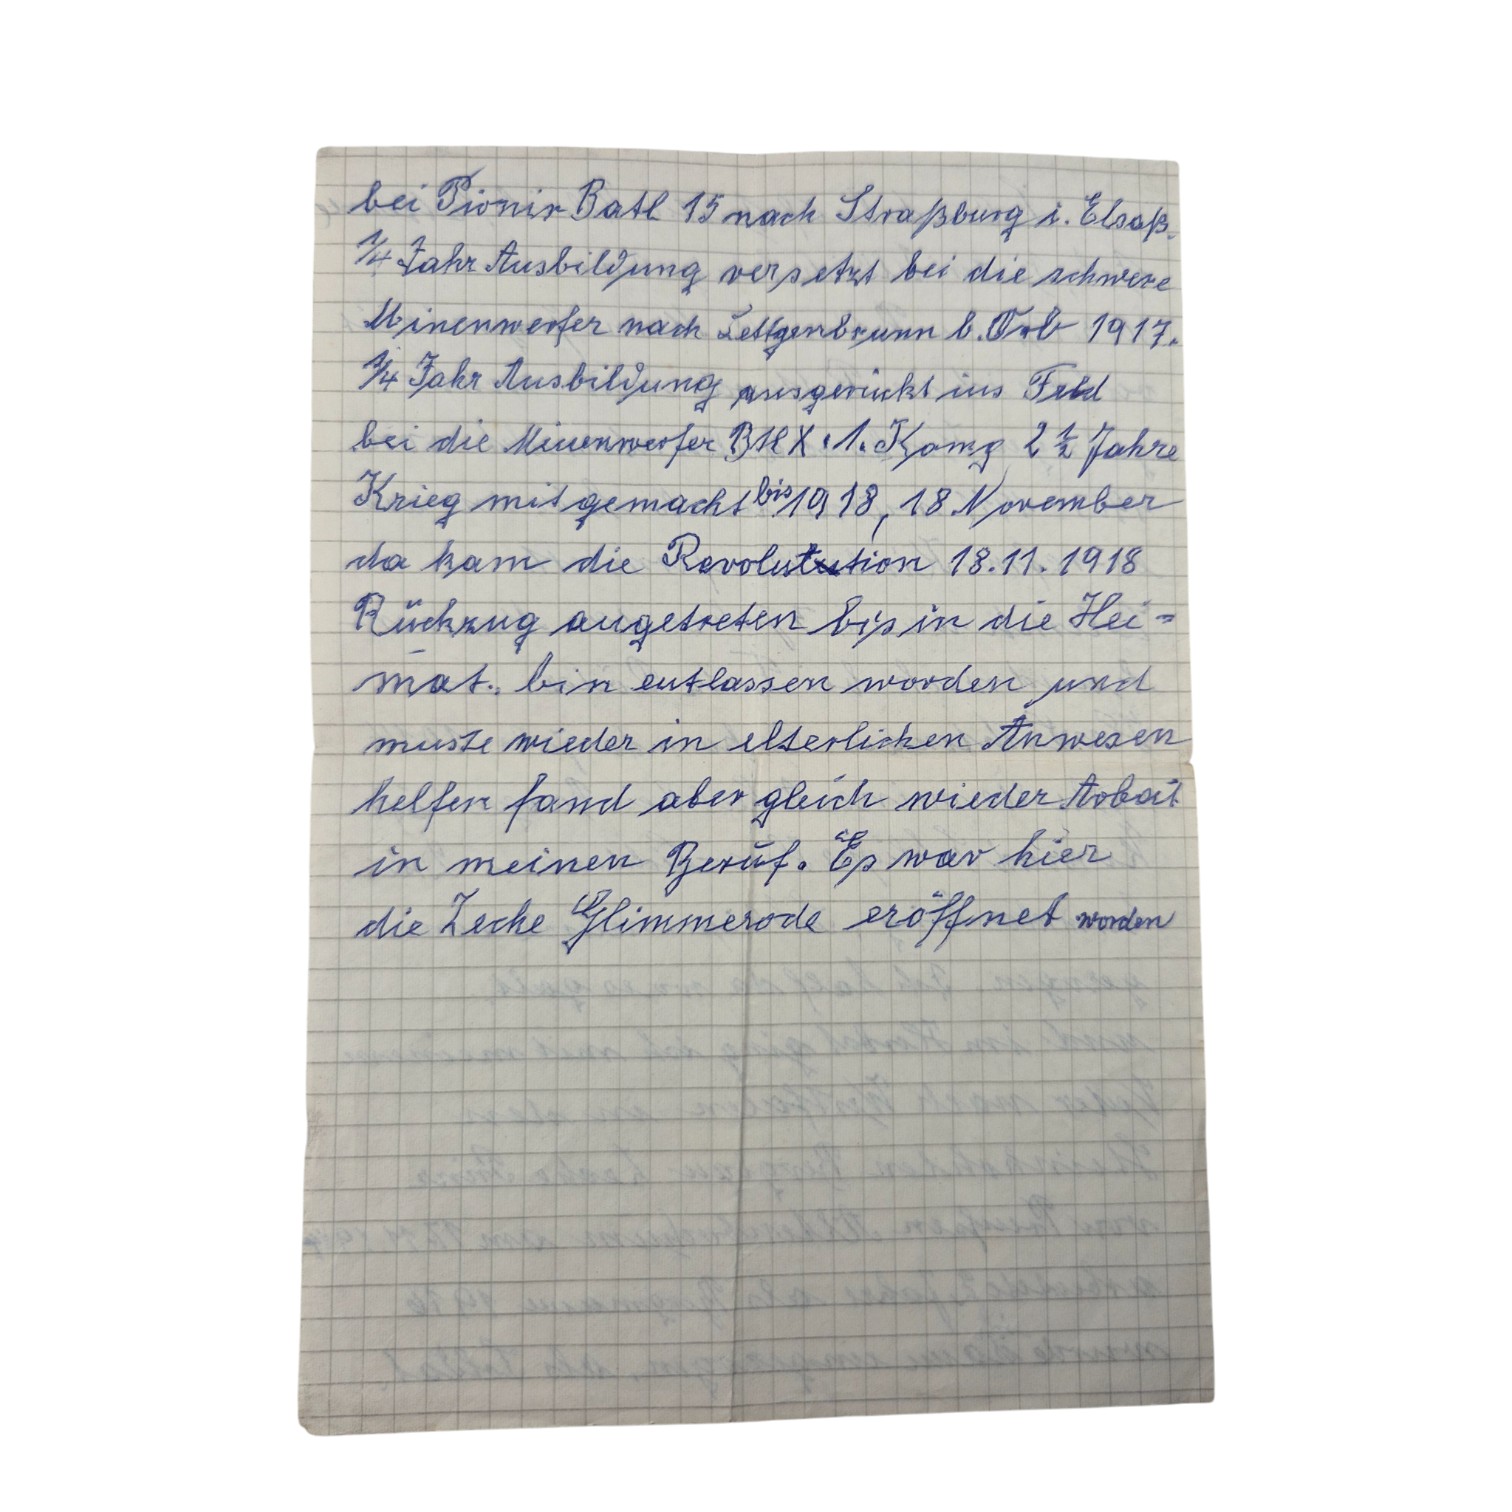 bei Pionir Batl 15 nach Straßburg i. Elsaß.
1/4 Jahr Ausbildung versetzt bei die schwere
Minenwerfer nach Lettgenbrunn b. Orb 1917.
3/4 Jahr Ausbildung ausgerückt ins Feld
bei die Minenwerfer X. 1. Komg 2 1/2 Jahre
Krieg mitgemacht bis 1918, 18 November
da kam die Revolution 18.11.1918
Rückzug angetreten bis in die Hei=
mat. bin entlassen worden und
muste wieder in elterlichen Anwesen
helfen fand aber gleich wieder Arbeit
in meinen Beruf. Es war hier
die Zeche Glimmerode eröffnet worden